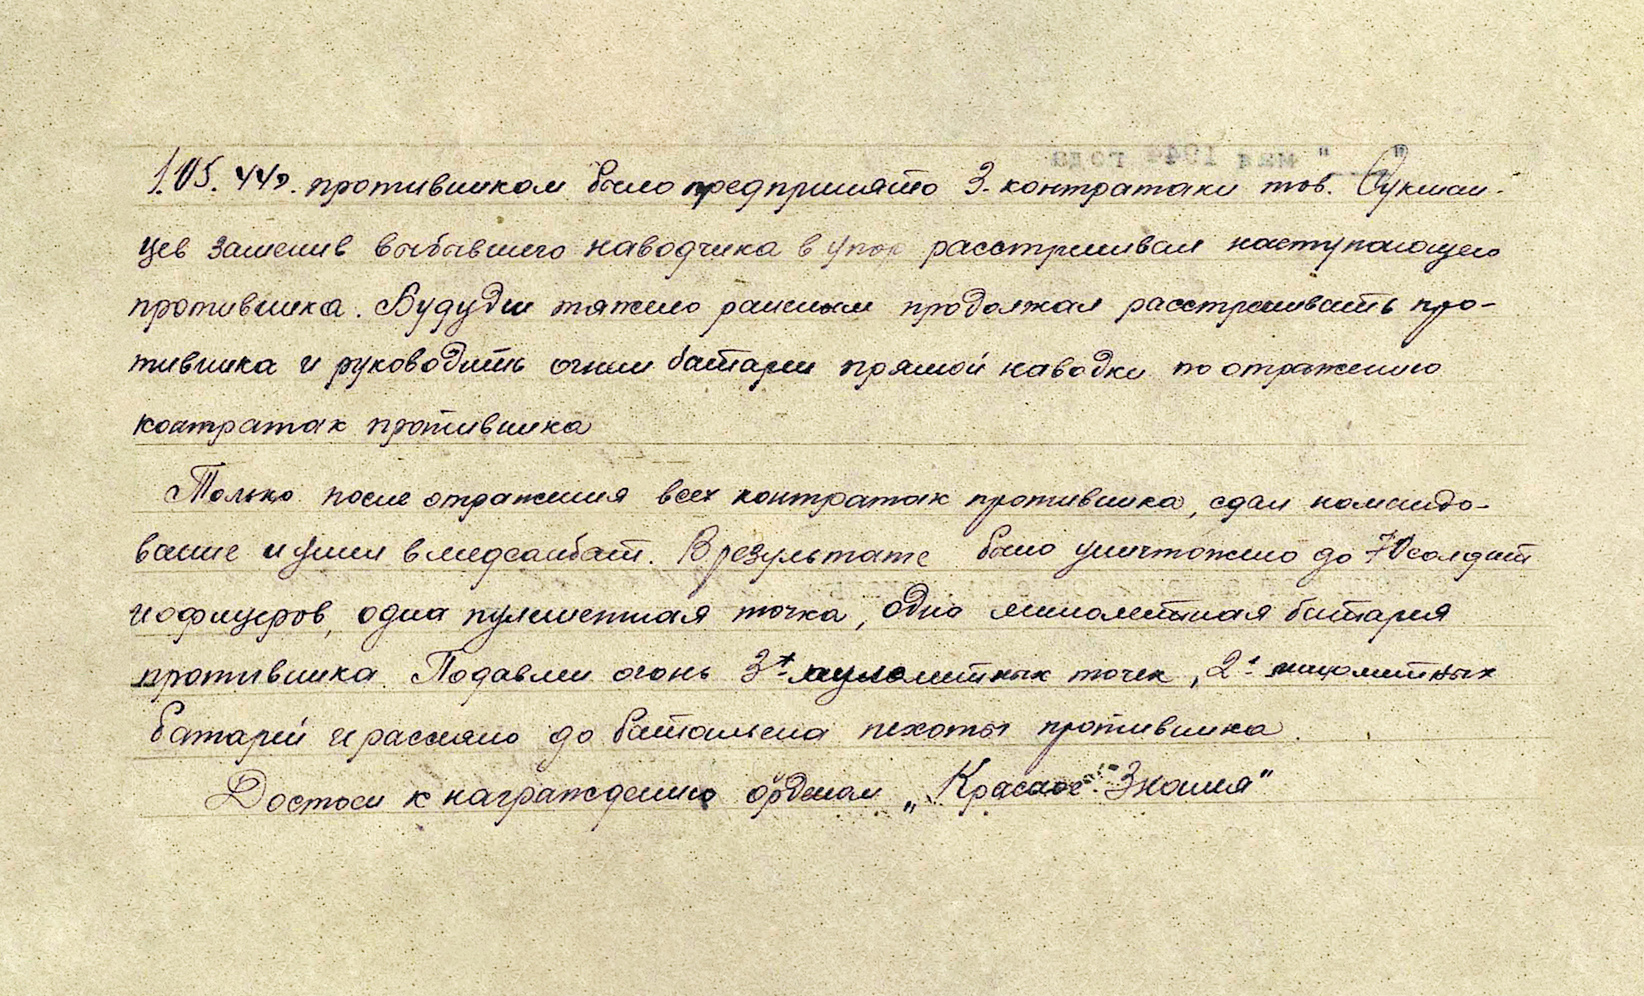 " " мая 1944 года
1.05.44г. противником было предпринято 3-контратаки тов. Сукман-
цев заменив выбывшего наводчика в упор расстреливал наступающего
противника. Будучи тяжело раненым продолжал расстреливать про-
тивника и руководить огнем батареи прямой наводки по отражению
контратак противника
Только после отражения всех контратак противника, сдал командо-
вание и ушел в медсанбат. В результате было уничтожено до 70 солдат
и офицеров, одна пулеметная точка, одна минометная батарея
противника. Подавлен огонь 3х пулеметных точек, 2х минометных
батарей и рассеяно до батальона пехоты противника.
Достоен к награждению орденом „Красное Знамя"